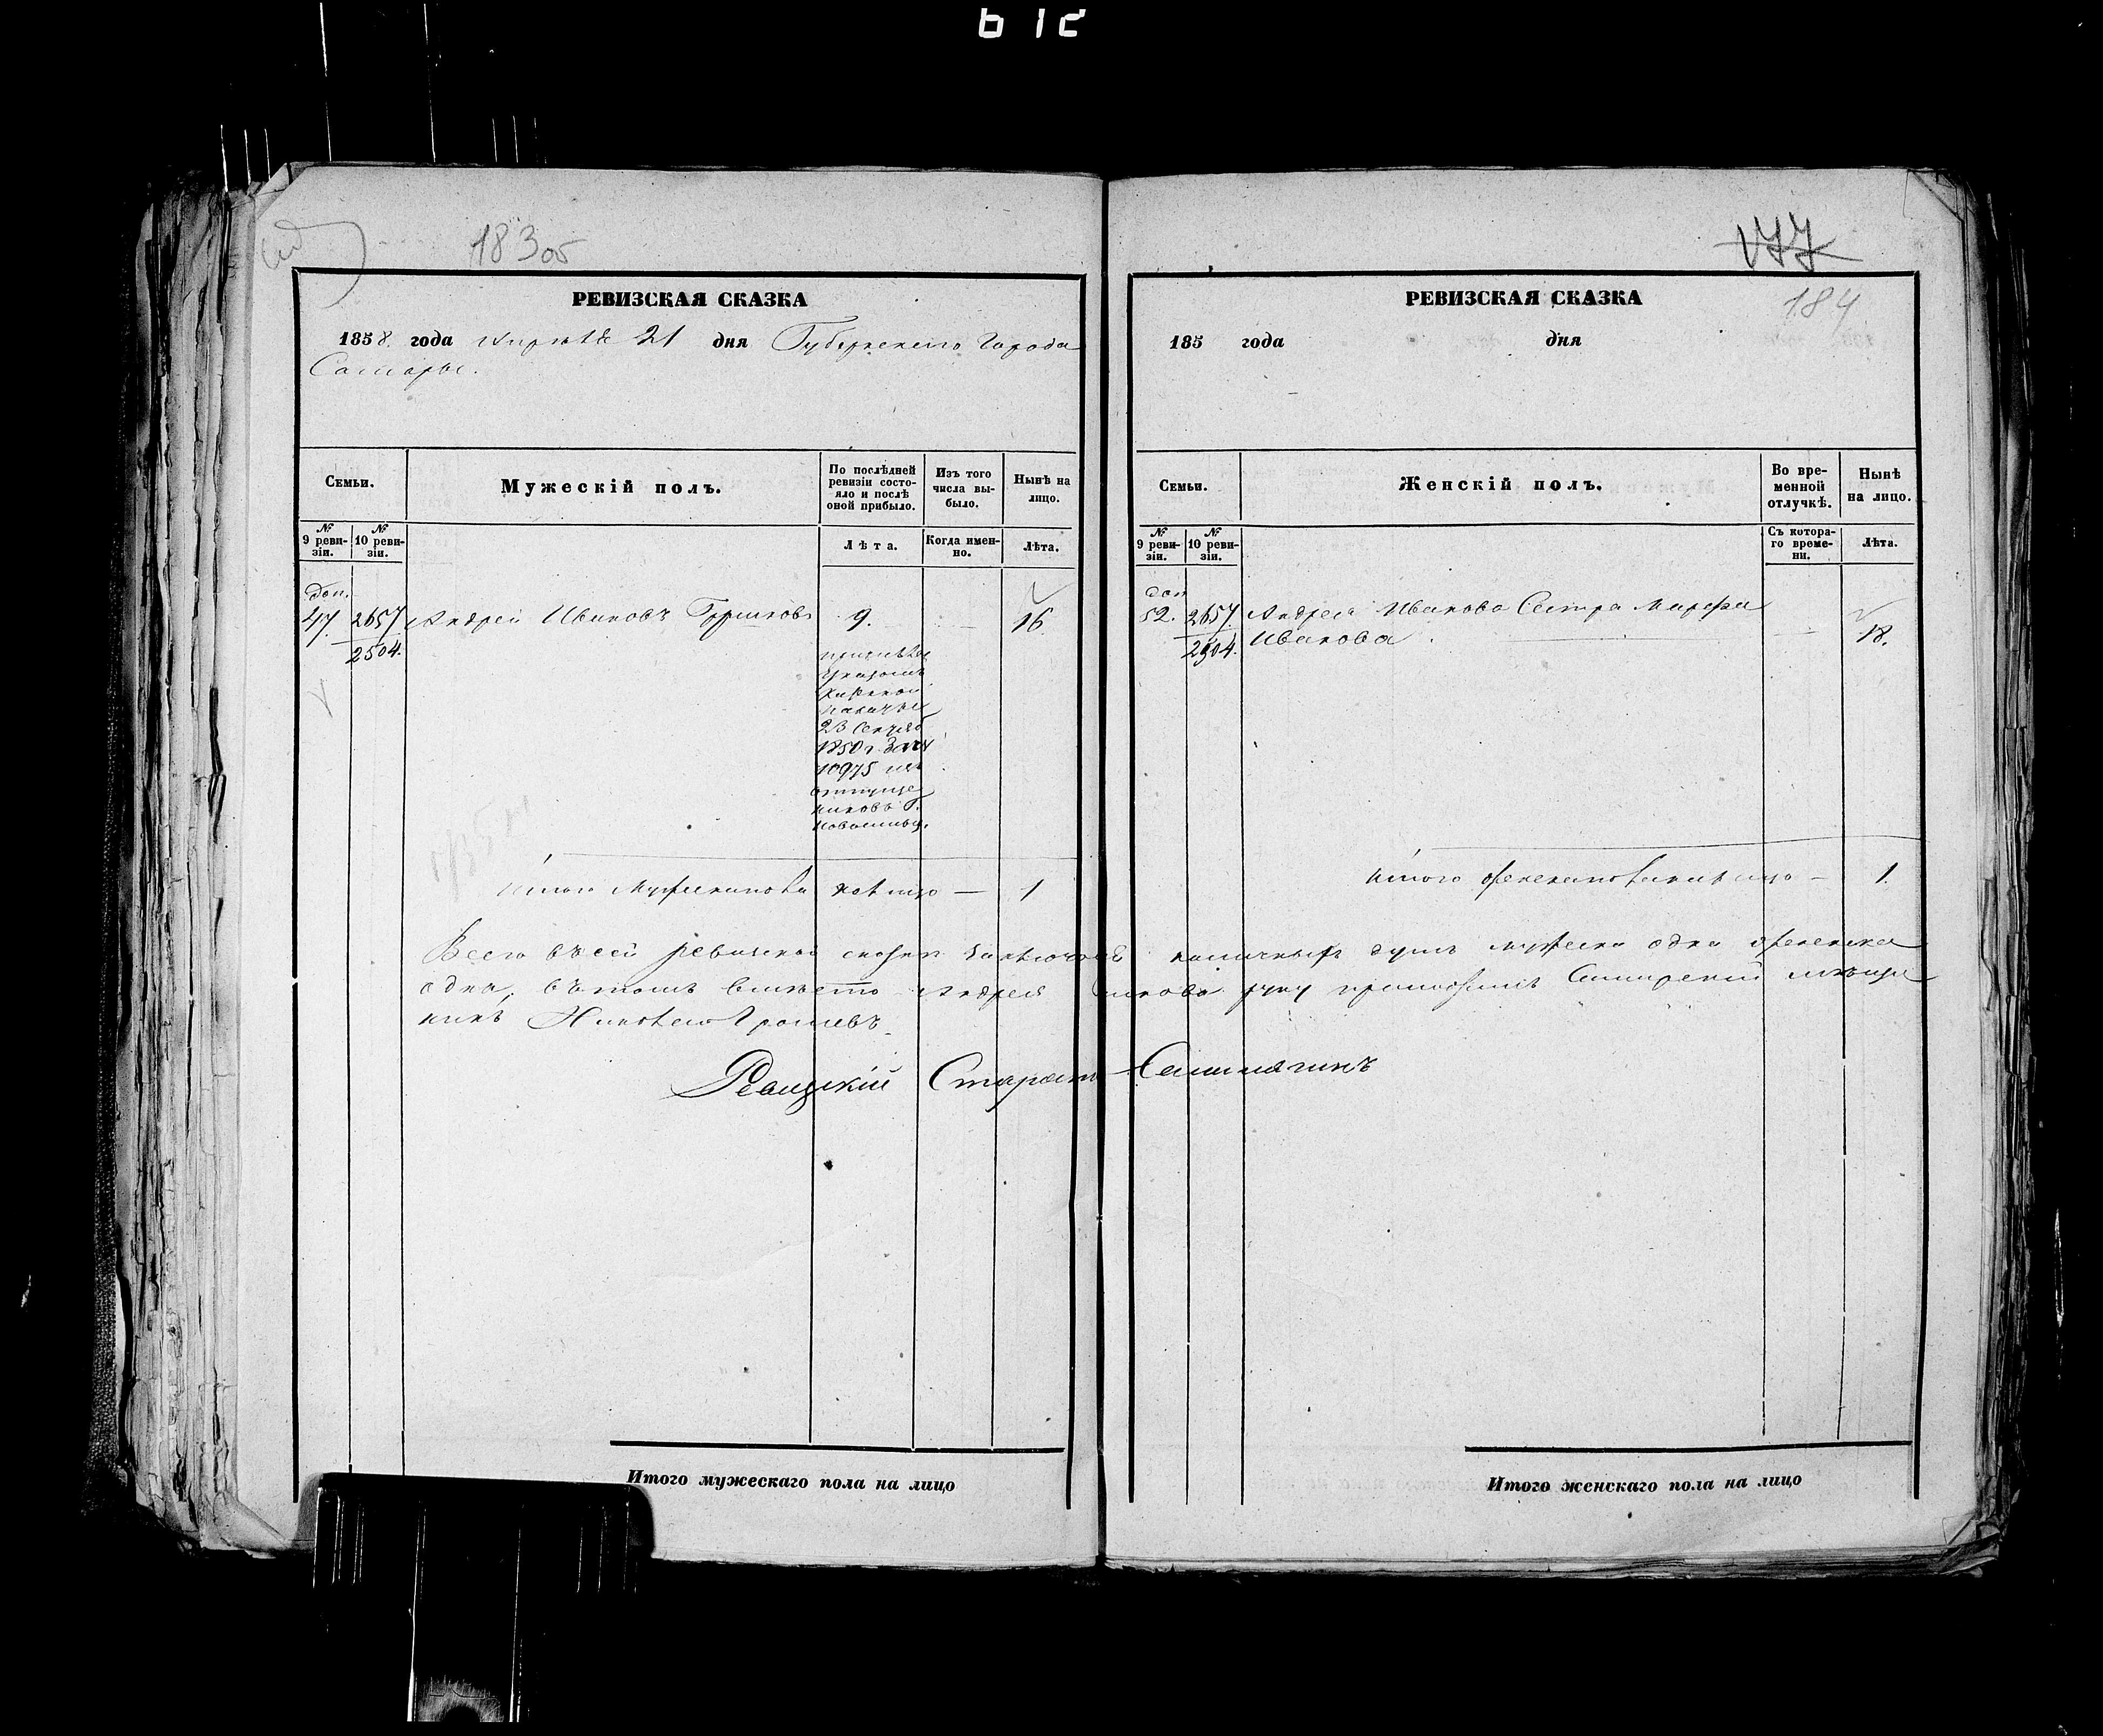 612
183 об
РЕВИЗСКАЯ СКАЗКА
1858. года Апреля 21 дня Губернскаго Города
Самары.
Семьи.
Мужескій полъ.
По послѣдней ревизіи состояло и послѣ оной прибыло.
Изъ того числа выбыло.
Нынѣ на лицо.
№ 9 ревизіи.
№ 10 ревизіи.
Лѣта.
Когда именно.
Лѣта.
доп.
47. 2657 Андрей Ивановъ 9. 16
2504.
23
1850 г.
10975
Итого Мужеска пола на лицо — 1
Всего въ сей ревизской сказке наличныхъ душъ мужеска одна женска
одна, въ томъ вместо Андрея руку приложилъ мѣща
нинъ
Староста
Итого мужескаго пола на лицо
177
184
РЕВИЗСКАЯ СКАЗКА
185 года дня
Семьи.
Женскій полъ.
Во временной отлучкѣ.
Нынѣ на лицо.
№ 9 ревизіи.
№ 10 ревизіи.
Съ котораго времени.
Лѣта.
доп
52. 2657. Андрея Иванова Сестра Марфа
2504. Иванова. 18.
Итого женска пола на лицо — 1.
Итого женскаго пола на лицо